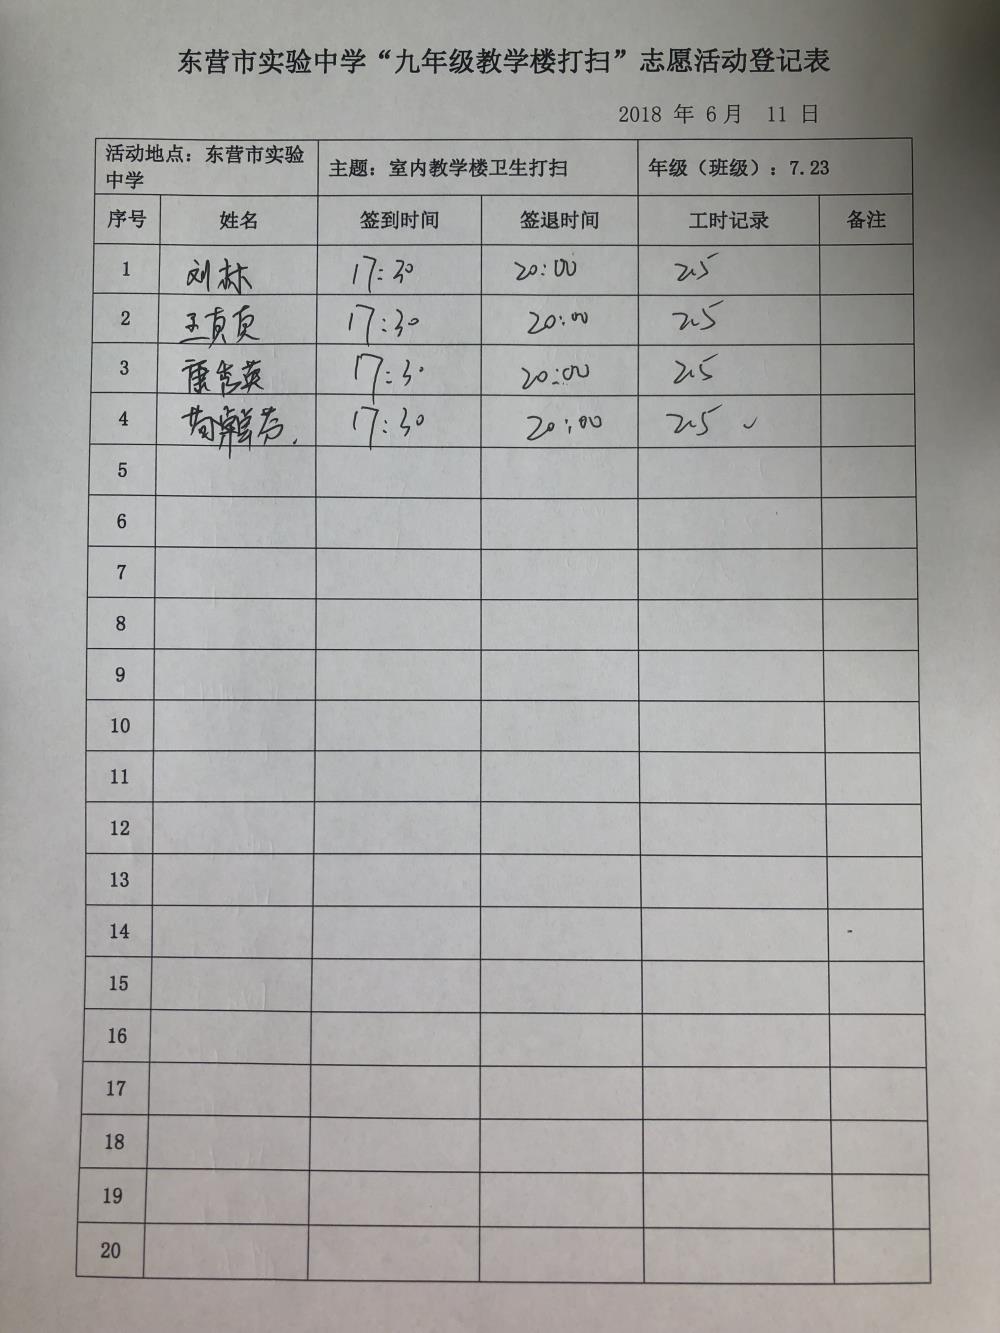 东营市实验中学“九年级教学楼打扫”志愿活动登记表
2018 年 6月 11 日
活动地点：东营市实验中学 主题：室内教学楼卫生打扫 年级（班级）：7.23
序号 姓名 签到时间 签退时间 工时记录 备注
1 刘林 17:30 20:00 2.5
2 王贞贞 17:30 20:00 2.5
3 秀英 17:30 20:00 2.5
4 17:30 20:00 2.5
5
6
7
8
9
10
11
12
13
14
15
16
17
18
19
20